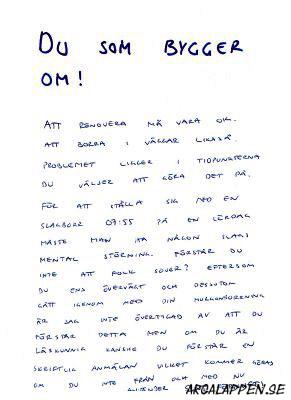 DU SOM BYGGER
OM!
ATT RENOVERA MÅ VARA OK.
ATT BORRA I VÄGGAR LIKASÅ.
PROBLEMET LIGGER I TIDPUNKTERNA
DU VÄLJER ATT GÖRA DET PÅ.
FÖR ATT STÄLLA SIG MED EN
SLAGBORR 07:55 PÅ EN LÖRDAG
MÅSTE MAN HA NÅGON SLAGS
MENTAL STÖRNING. FÖRSTÅR DU
INTE ATT FOLK SOVER? EFTERSOM
DU ENS ÖVERVÄGT OCH DESSUTOM
GÅTT IGENOM MED DIN
ÄR JAG INTE ÖVERTYGAD AV ATT DU
FÖRSTÅR DETTA MEN OM DU ÄR
LÄSKUNNIG KANSKE DU FÖRSTÅR EN
SKRIFTLIG ANMÄLAN VILKET KOMMER GÖRAS
OM DU INTE FRÅN OCH MED NU
ARGALAPPEN.SE